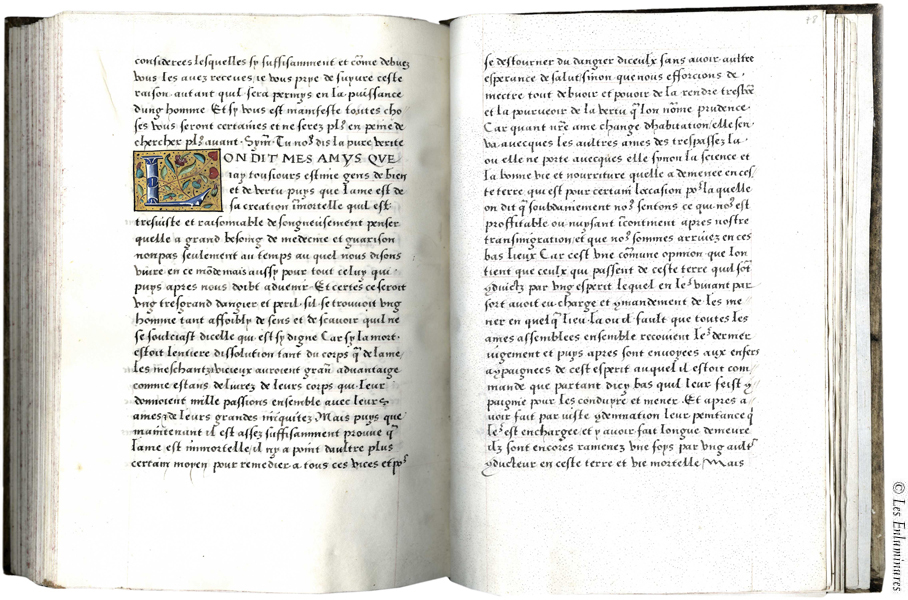 considerees lesquelles sy suffisamment et cōme debuez
vous les avez receues ie vous prye de suyure ceste
raison autant quil sera permys en la puissance
dung homme Et sy vous est manifeste toutes cho
ses vous seront certaines et ne serez plꝰ en peine de
chercher plꝰ auant. Sym. Tu noꝰ dis la pure verite
LON DIT MES AMYS QUE
iay tousiours estimé gens de bien
et de vertu puys que lame est de
sa creation īmortelle quil est
tresiuste et raisonnable de songneusement penser
quelle a grand besoing de medecine et guarison
non pas seulement au temps au quel nous disons
viure en ce mōde mais aussy pour tout celuy qui
puys apres nous doibt aduenir Et certes ce seroit
vng tresgrand dangier et peril sil se trouuoit vng
homme tant affoibly de sens et de scauoir quil ne
se souciast dicelle qui est sy digne Car sy la mort
estoit lentiere dissolution tant du corps q̄ de lame
les meschantz vicieux auroient gran advantaige
comme estans deliurez de leurs corps qui leur
donnoient mille passions ensemble avec leurs
ames & de leurs grandes iniquitez Mais puys que
maintenant il est assez suffisamment prouue q̄
lame est immortelle il ny a point daultre plus
certain moyen pour remedier a tous ces vices et poꝰ
48
se destourner du dangier diceulx sans avoir aultre
esperance de salut sinon que nous efforcions de
mectre tout debuoir et pouoir de la rendre tresbōe
et la pourueoir de la vertu q̄ lon nōme prudence
Car quant nr̄e ame change dhabitation elle sen
va auecques les aultres ames des trespassez la
ou elle ne porte auecques elle synon la science et
la bonne vie et nourriture quelle a demenee en ces
te terre qui est pour certain loccasion poꝰ laquelle
on dit q̄ soubdainement noꝰ sentons ce qui noꝰ est
proffitable ou nuysant īcontinent apres nostre
transmigration et que noꝰ sommes arriuez en ces
bas lieux Car cest vne cōmune opinion que lon
tient que ceulx qui passent de ceste terre qui sōt
ꝯduictz par vng esperit lequel en leꝰ viuant par
sort auoit eu charge et ꝯmandement de les me
ner en quelq̄ lieu la ou il fault que toutes les
ames assemblees ensemble recoiuent leꝰ dernier
iugement et puys apres sont enuoyees aux enfers
aꝯpaignees de cest esperit auquel il estoit com
mande que partant dicy bas quil leur feist ꝯ
paignie pour les conduyre et mener Et apres a
uoir fait par iuste ꝯdemnation leur penitance q̄
leꝰ est enchargee et y avoir fait longue demeure
ilz sont encores ramenez vne foys par vng aultꝰ
ꝯducteur en ceste terre et vie mortelle Mais
© Les Enluminures